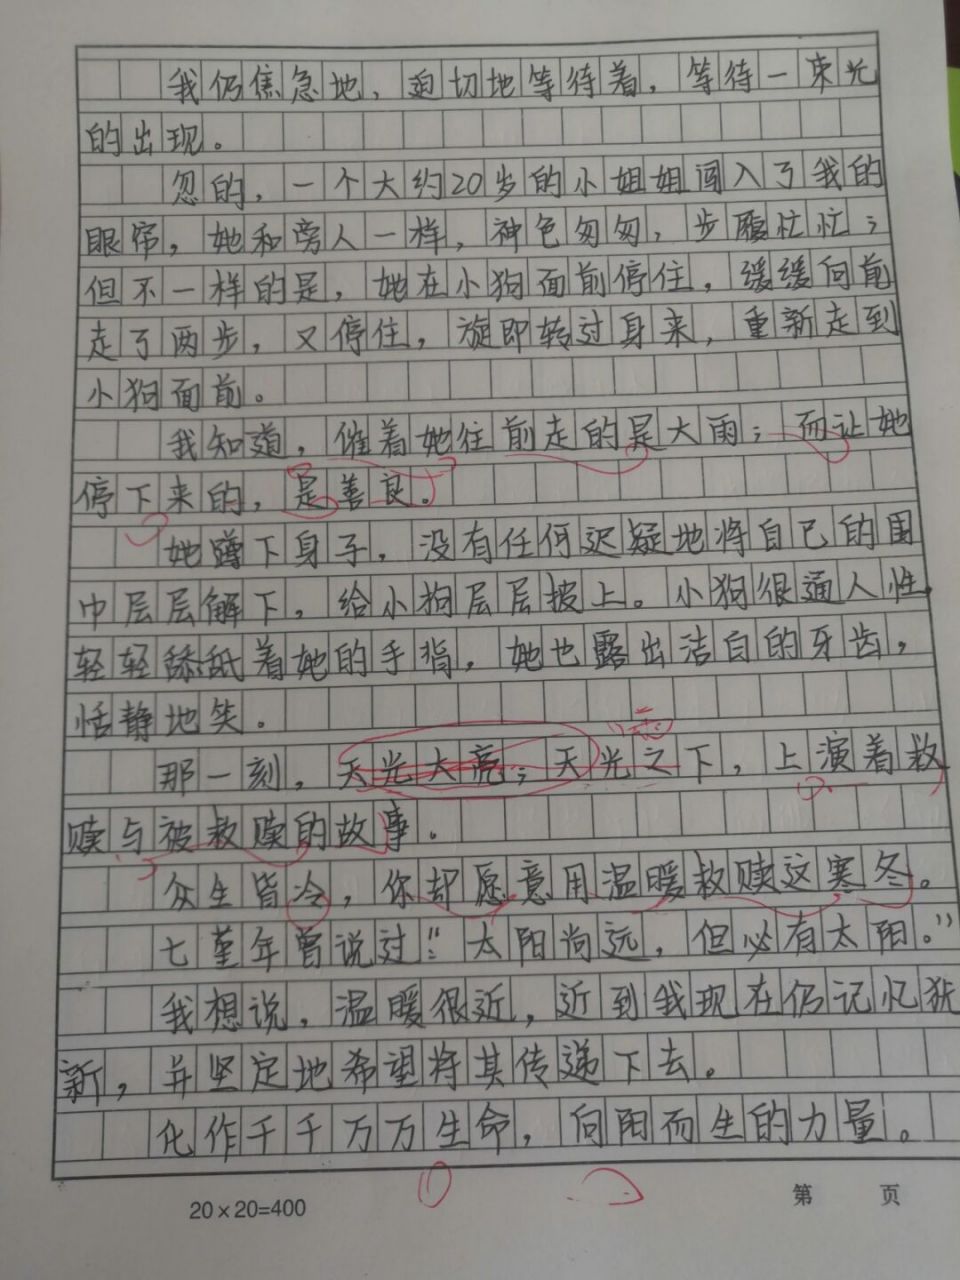 我仍焦急地、迫切地等待着，等待一束光
的出现。
忽的，一个大约20岁的小姐姐闯入了我的
眼帘，她和旁人一样，神色匆匆，步履忙忙；
但不一样的是，她在小狗面前停住，缓缓向前
走了两步，又停住，旋即转过身来，重新走到
小狗面前。
我知道，催着她往前走的是大雨；而让她
停下来的，是善良。
她蹲下身子，没有任何迟疑地将自己的围
巾层层解下，给小狗层层披上。小狗很通人性，
轻轻舔舐着她的手指，她也露出洁白的牙齿，
恬静地笑。
那一刻，天光大亮；天光之下，上演着救
赎与被救赎的故事。
众生皆冷，你却愿意用温暖救赎这寒冬。
七堇年曾说过："太阳尚远，但必有太阳。"
我想说，温暖很近，近到我现在仍记忆犹
新，并坚定地希望将其传递下去。
化作千千万万生命，向阳而生的力量。
20×20=400
第 页